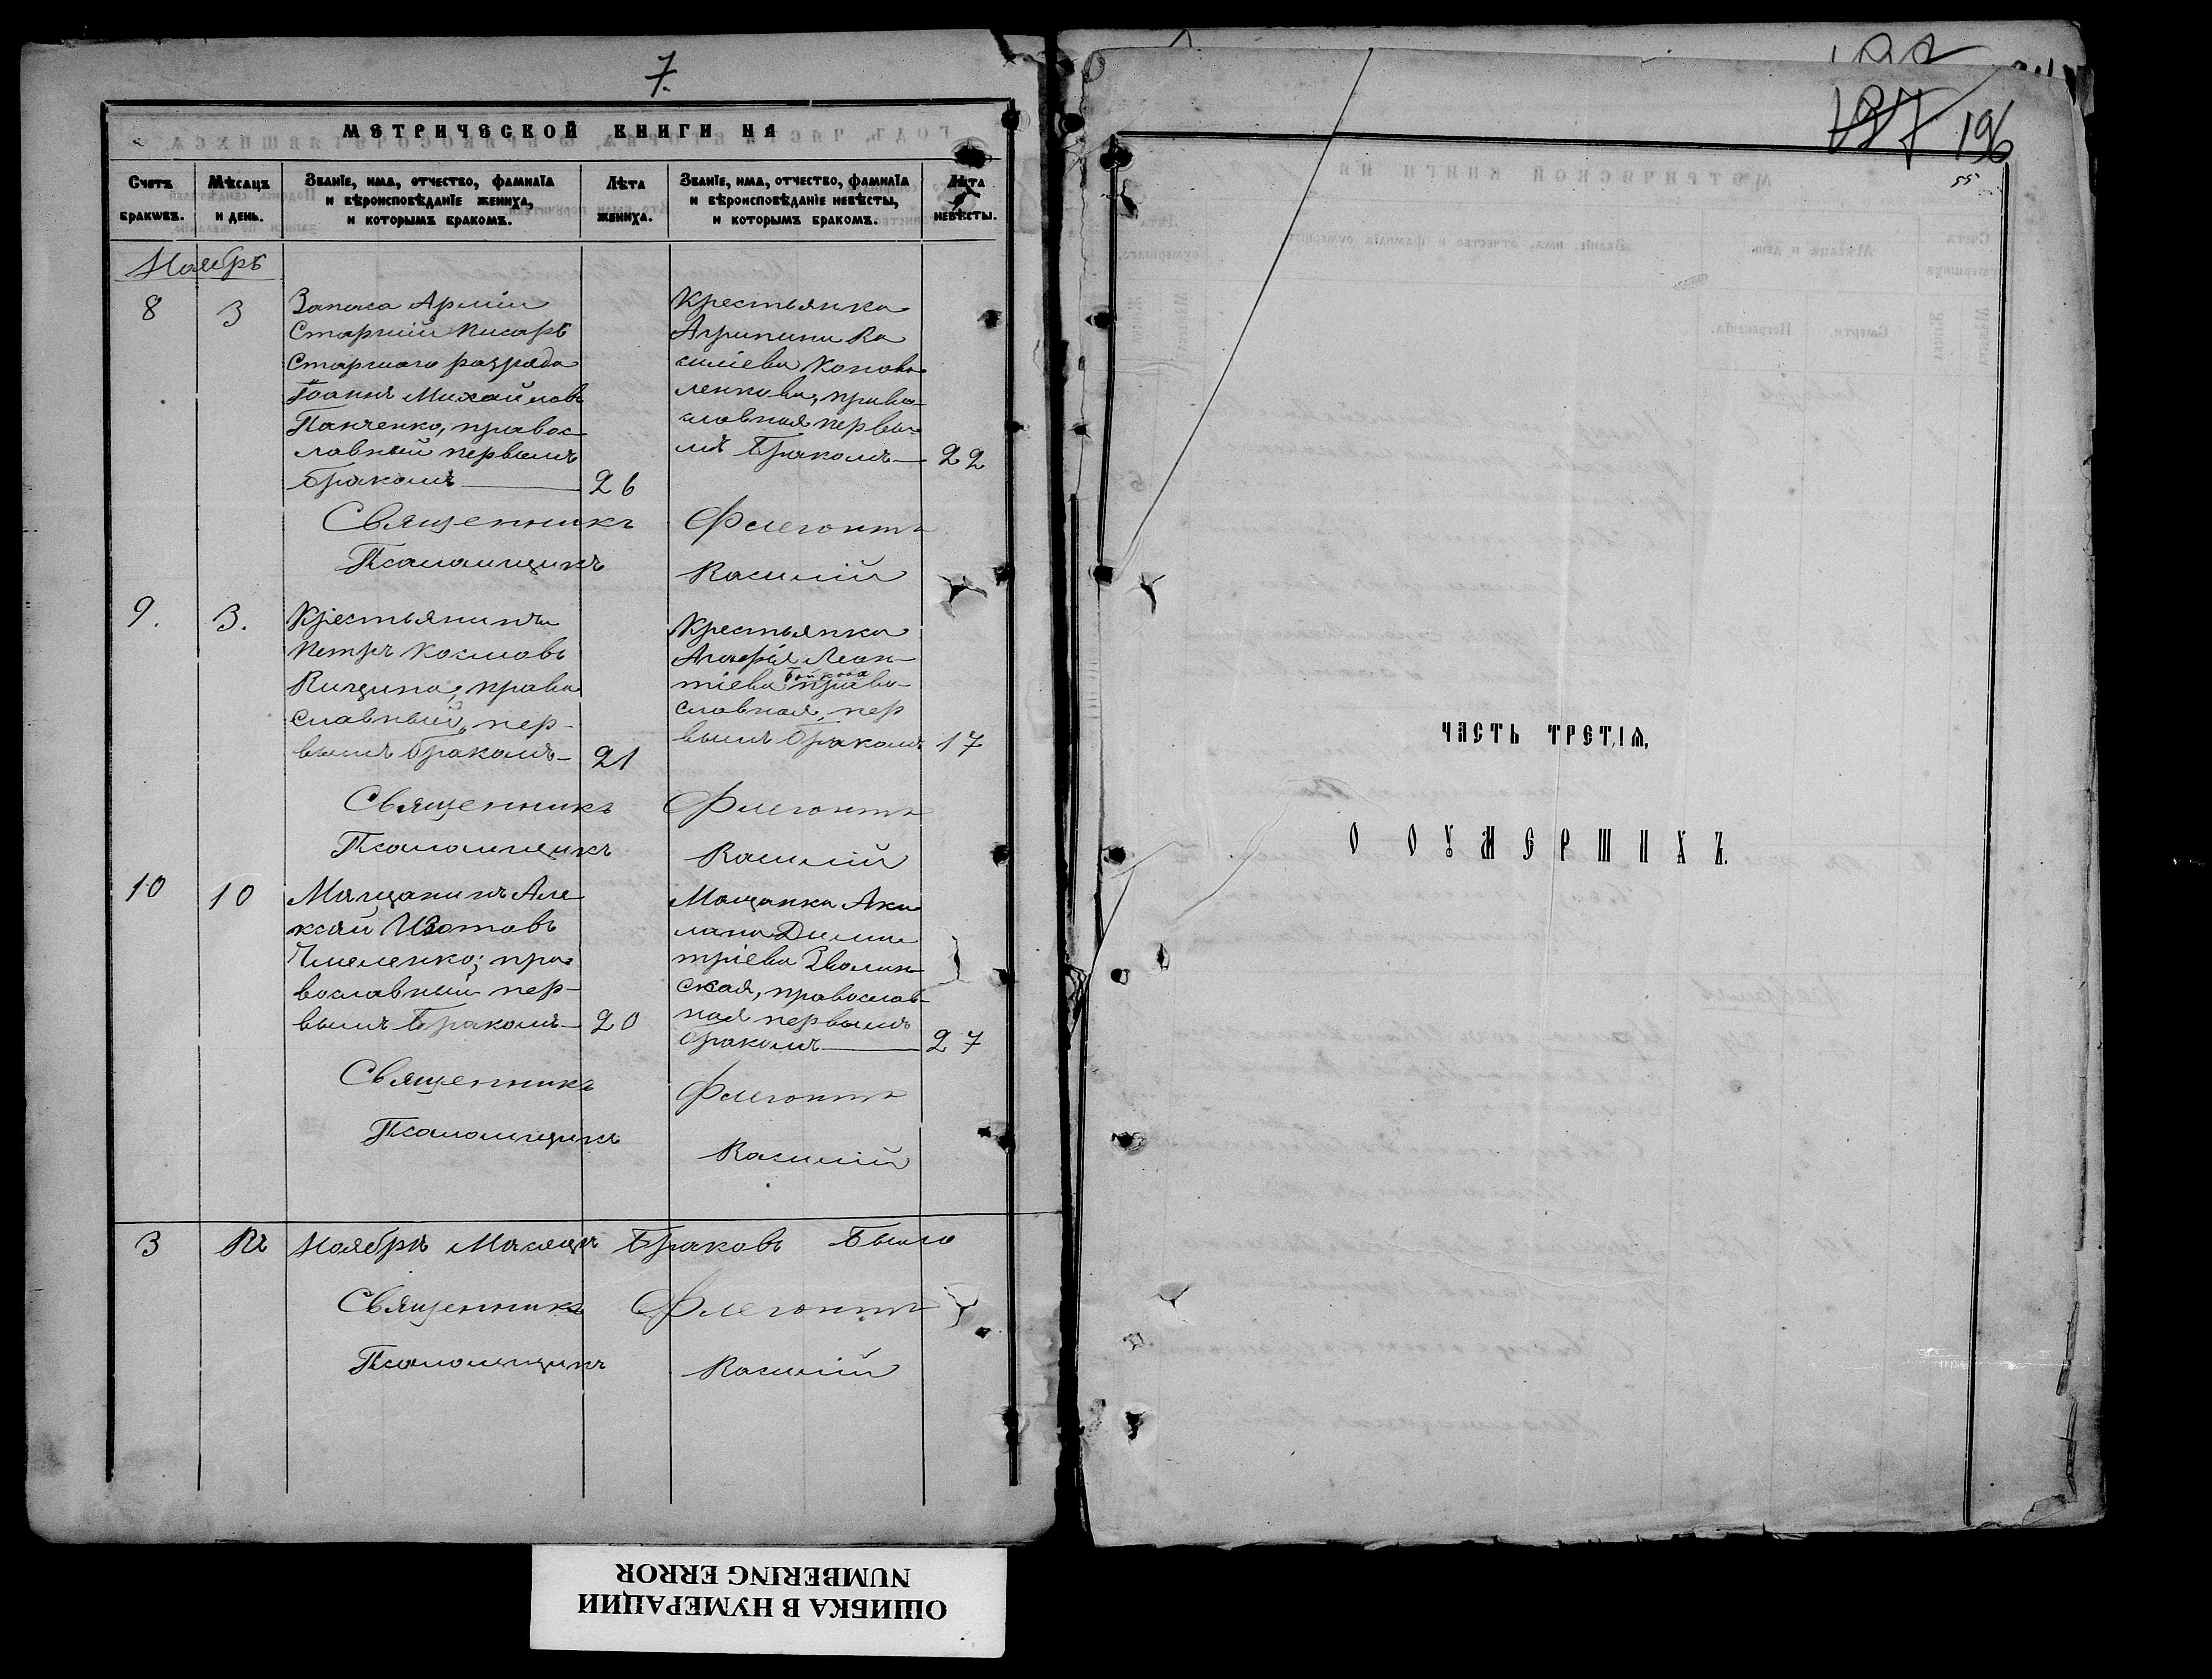 7.
МЕТРИЧЕСКОЙ КНИГИ НА
Счетъ бракѡвъ.
Мѣсацъ и день.
Званїе, има, отчество, фамилїа и вѣроисповѣданїе жениха, и которымъ бракомъ.
Лѣта жениха.
Званїе, има, отчество, фамилїа и вѣроисповѣданїе невѣсты, и которымъ бракомъ.
Лѣта невѣсты.
Ноябрь
8
3
Запаса Арміи
Старшій Писарь
Старшаго разряда
Іоаннъ Михайловъ
Панченко, правос-
лавный первымъ
бракомъ
26
Крестьянка
Агрипина Ва
силіева Конова
ленкова, право-
славная первы-
мъ бракомъ
22
Священникъ Флегонтъ
Псаломщикъ Василій
9.
3.
Крестьянинъ
Петръ Космовъ
Кищина, право
славный, пер-
вымъ бракомъ
21
Крестьянка
Агафія Леон-
тіева Бойкова
право-
славная, пер
вымъ бракомъ
17
Священникъ Флегонтъ
Псаломщикъ Василій
10
10
Мѣщанинъ Але
ксѣй Изотовъ
Чмеленко; пра-
вославный пер-
вымъ бракомъ
20
Мѣщанка Аки
лина Дими
тріева Зволин
ская, православ-
ная первымъ
бракомъ
27
Священникъ Флегонтъ
Псаломщикъ Василій
3 Въ Ноябрѣ Мѣсяцѣ Браковъ Было
Священникъ Флегонтъ
Псаломщикъ Василій
ОШИБКА В НУМЕРАЦИИ
NUMBERING ERROR
197 196
55
ЧАСТЬ ТРЕТІѦ,
О ОУМЕРШИХЪ.